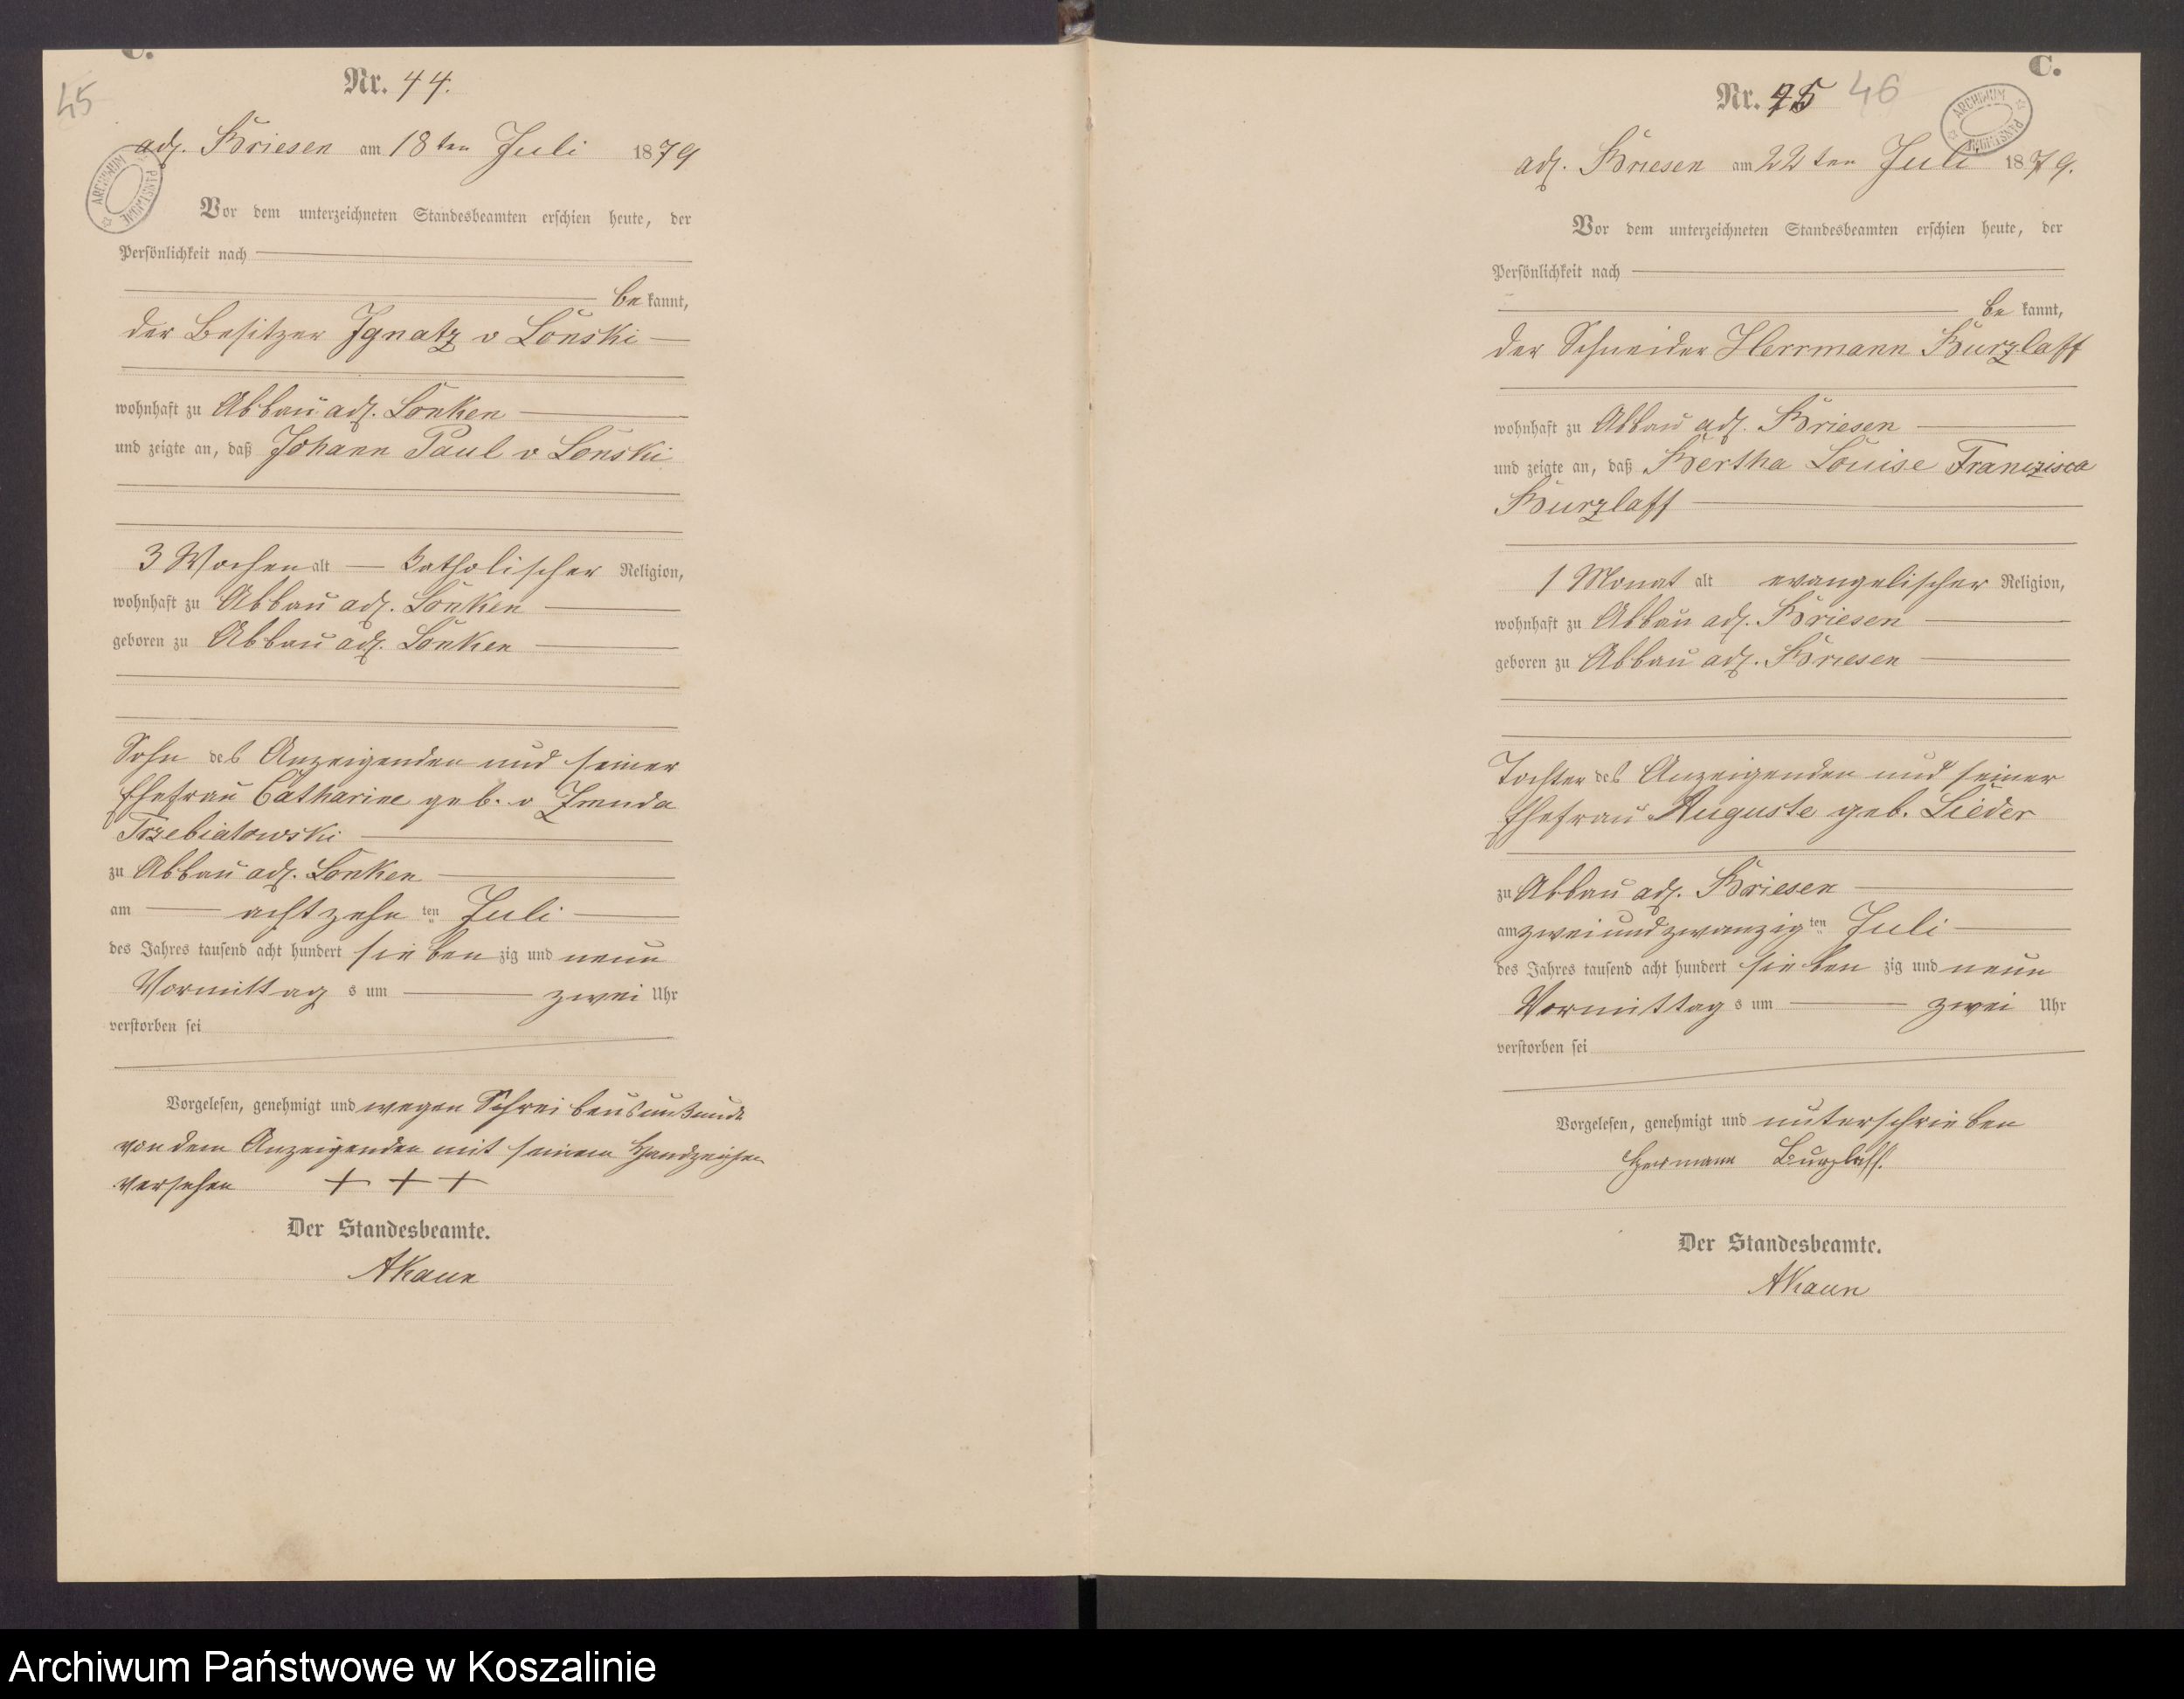 C.
45
Nr. 44.
adl. Briesen am 18ten Juli 1879
ARCHIWUM PAŃSTWOWE
Vor dem unterzeichneten Standesbeamten erschien heute, der
Persönlichkeit nach
be kannt,
der Besitzer Ignatz v Lonski
wohnhaft zu Abbau adl. Lonken
und zeigte an, daß Johann Paul v Lonski
3 Wochen alt katholischer Religion,
wohnhaft zu Abbau adl. Lonken
geboren zu Abbau adl. Lonken
Sohn des Anzeigenden und seiner
Ehefrau Catharine geb. v Zmuda
Trzebiatowski
zu Abbau adl. Lonken
am achtzehn ten Juli
des Jahres tausend acht hundert sieben zig und neun
Vormittag s um zwei Uhr
verstorben sei
Vorgelesen, genehmigt und wegen Schreibensunkunde
von dem Anzeigenden mit seinem Handzeichen
versehen + + +
Der Standesbeamte.
AKaun
C.
Nr. 45 46
ARCHIWUM PAŃSTWOWE
adl. Briesen am 22ten Juli 1879.
Vor dem unterzeichneten Standesbeamten erschien heute, der
Persönlichkeit nach
be kannt,
der Schneider Herrmann Burzlaff
wohnhaft zu Abbau adl. Briesen
und zeigte an, daß Bertha Louise Franczisca
Burzlaff
1 Monat alt evangelischer Religion,
wohnhaft zu Abbau adl. Briesen
geboren zu Abbau adl. Briesen
Tochter des Anzeigenden und seiner
Ehefrau Auguste geb. Lieder
zu Abbau adl. Briesen
am zweiundzwanzig ten Juli
des Jahres tausend acht hundert sieben zig und neun
Vormittag s um zwei Uhr
verstorben sei
Vorgelesen, genehmigt und unterschrieben
Hermann Burzlaff.
Der Standesbeamte.
AKaun
Archiwum Państwowe w Koszalinie